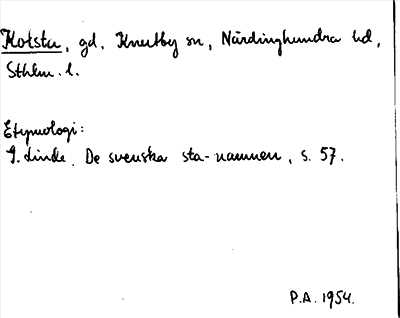 Kolsta, gd, Knutby sn, Närdinghundra hd,
Sthlm. l.
Etymologi:
G. Linde. De svenska sta-namnen, s. 57.
P.A. 1954.